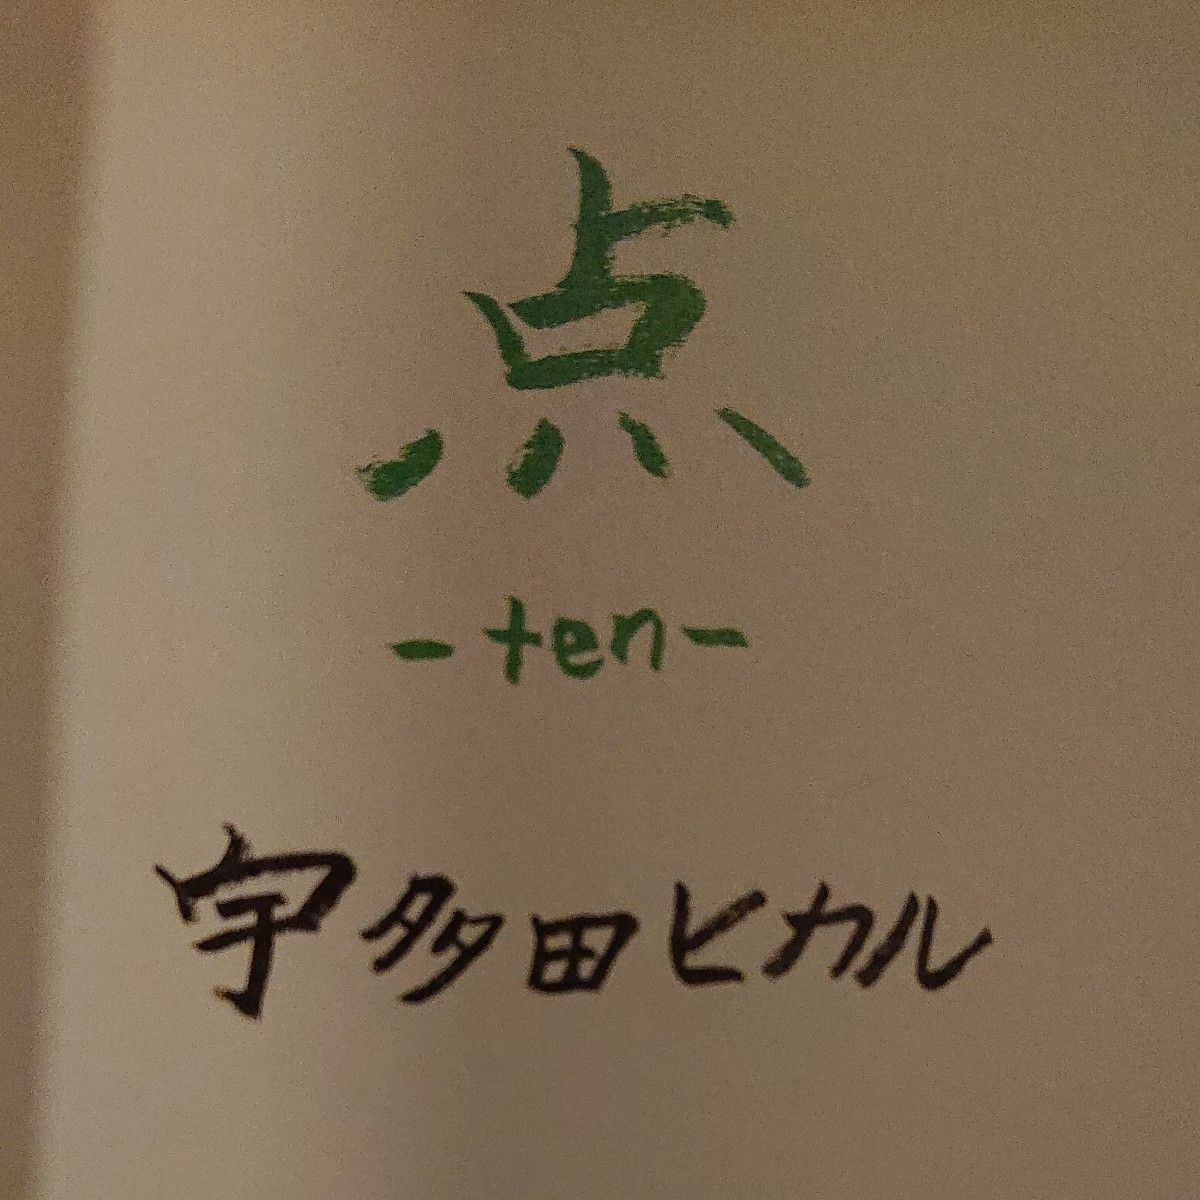 点
-ten-
宇多田ヒカル